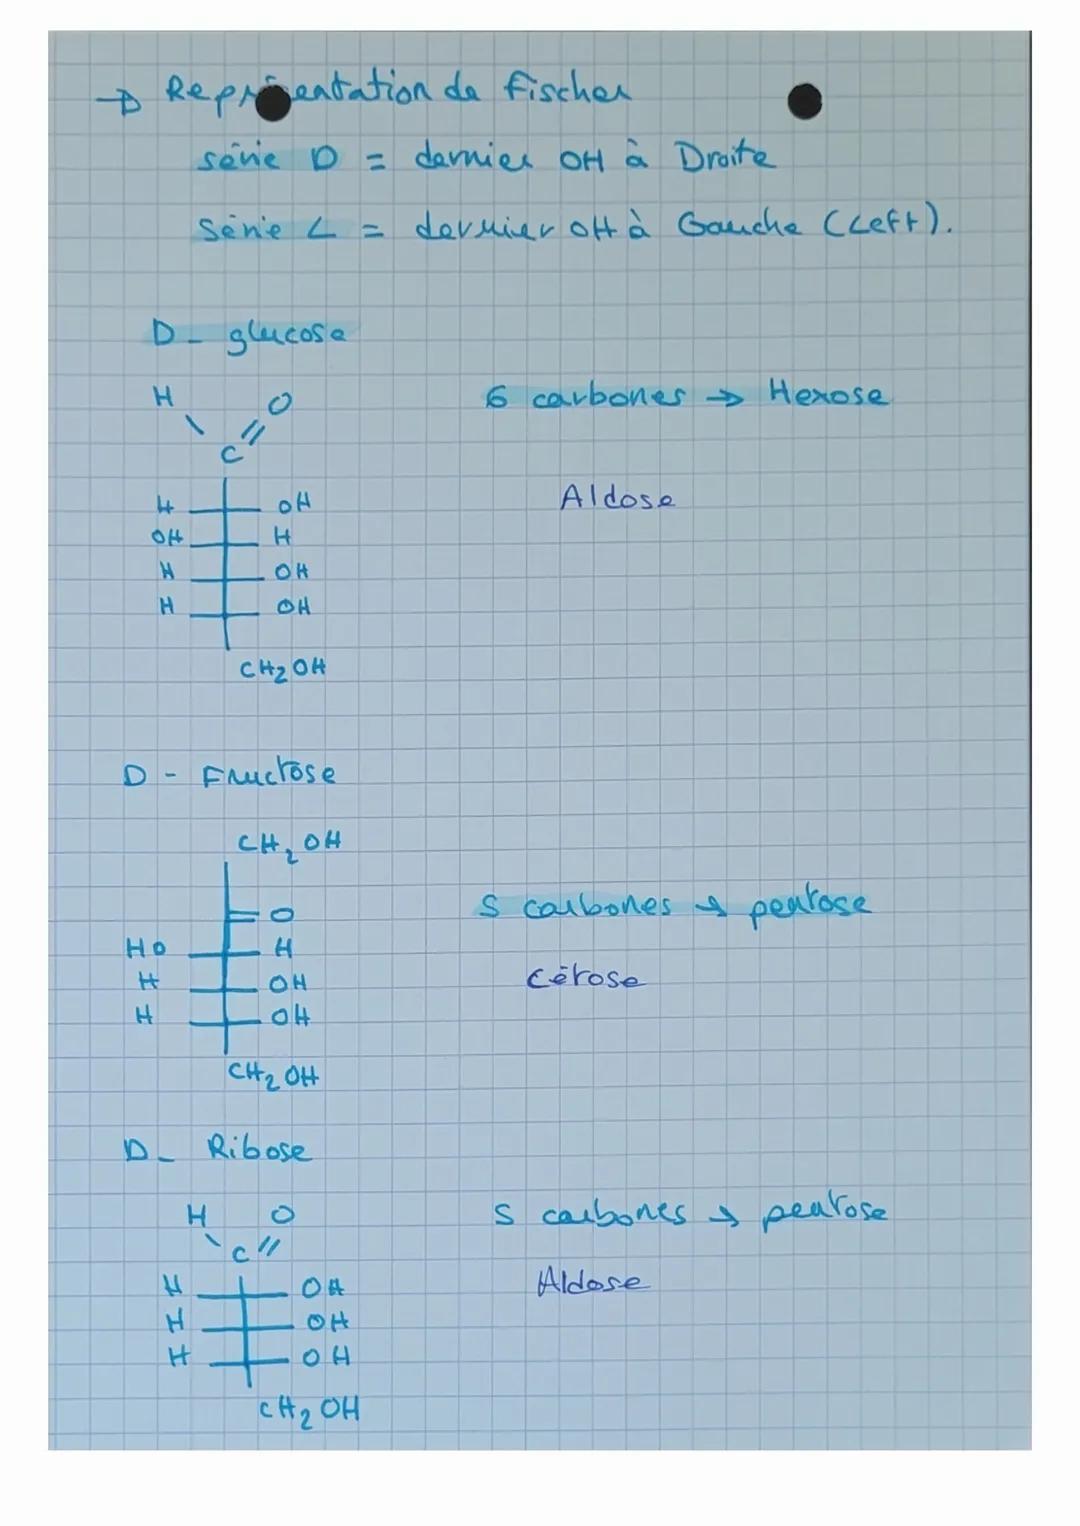 → Représentation de Fischer
série D = dernier OH à Droite
Série L = dernier OH à Gauche (Left).
D - glucose
H O
6 carbones → Hexose
C
Aldose
H OH
OH H
H OH
H OH
CH₂OH
D - Fructose
CH₂OH
5 carbones → pentose
O
HO H
Cétose
H OH
H OH
CH₂OH
D - Ribose
H O
5 carbones → pentose
C
Aldose
H OH
H OH
H OH
CH₂OH